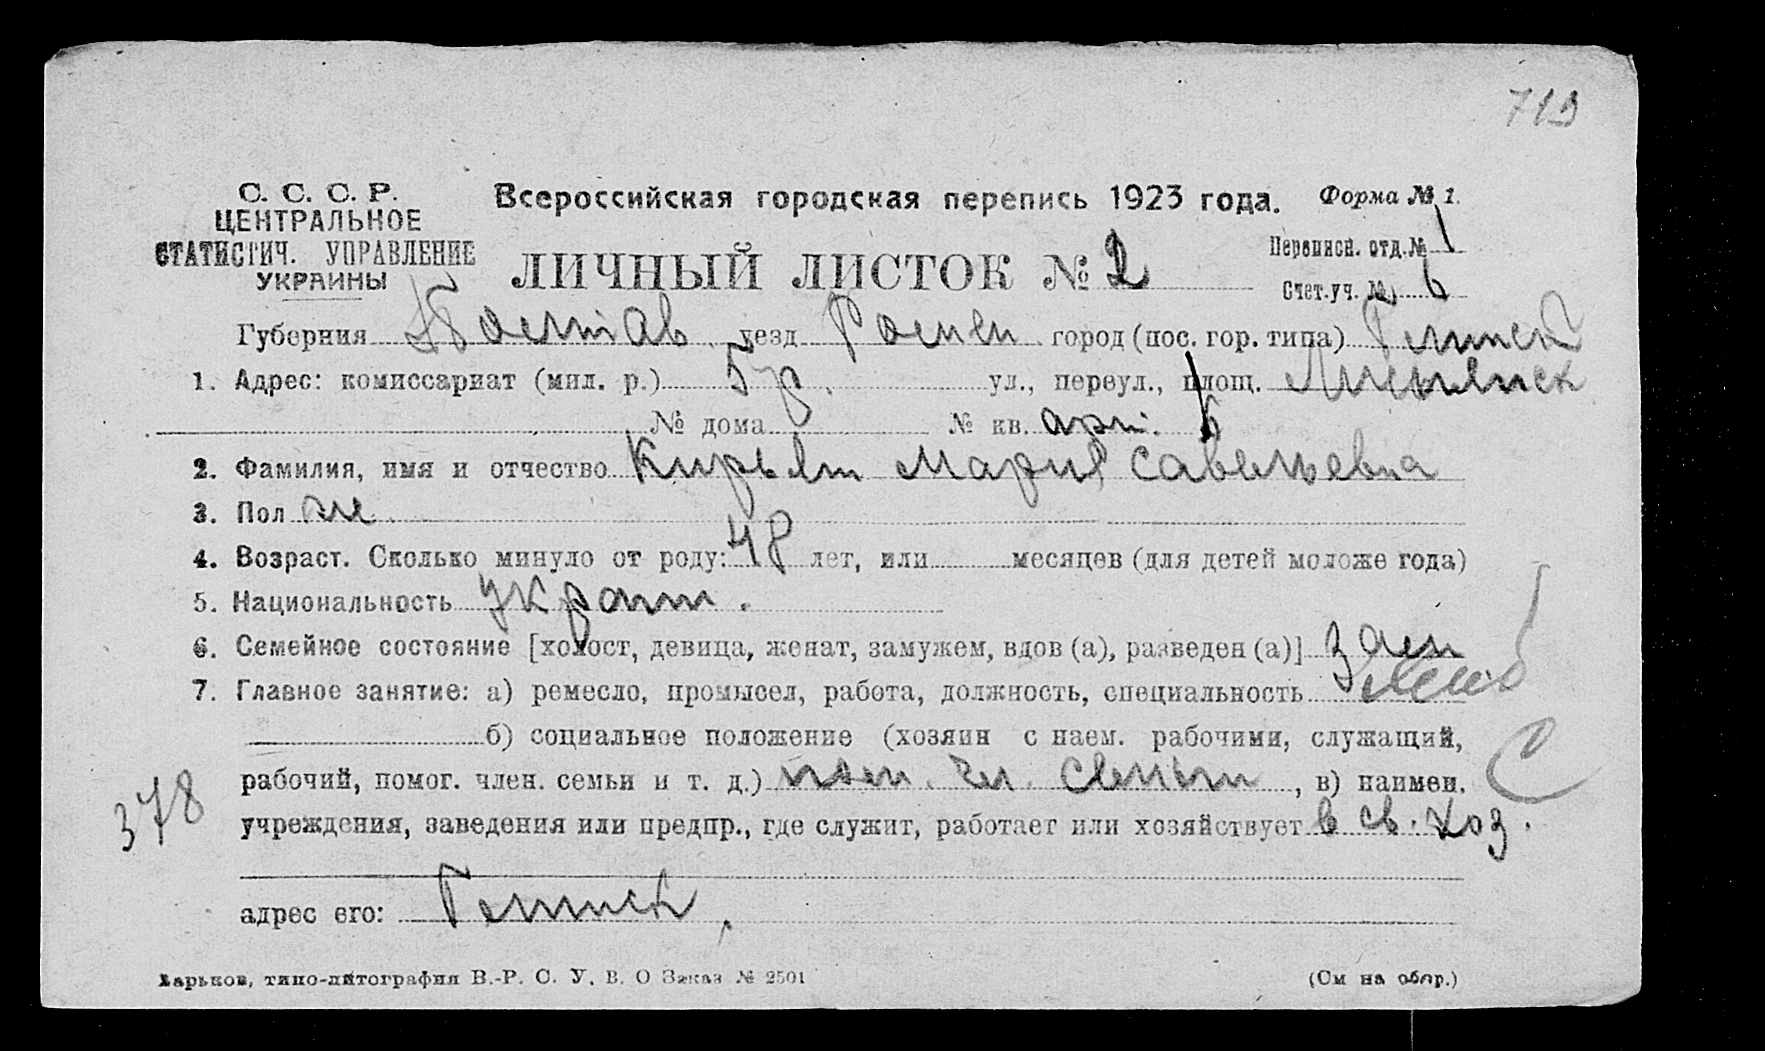 719
С. С. С. Р.
ЦЕНТРАЛЬНОЕ
СТАТИСТИЧ. УПРАВЛЕНИЕ
УКРАИНЫ
Всероссийская городская перепись 1923 года. Форма № 1.
ЛИЧНЫЙ ЛИСТОК № 2
Переписн. отд. № 1
Счет. уч. № 6
Губерния Полтав уезд Ромен город (пос. гор. типа)
1. Адрес: комиссариат (мил. р.) 5 р. ул., переул., площ.
№ дома № кв. арт. 6
2. Фамилия, имя и отчество Мария Савельевна
3. Пол ж.
4. Возраст. Сколько минуло от роду: 48 лет, или месяцев (для детей моложе года)
5. Национальность украин.
6. Семейное состояние [холост, девица, женат, замужем, вдов (а), разведен (а)] зам
7. Главное занятие: а) ремесло, промысел, работа, должность, специальность
б) социальное положение (хозяин с наем. рабочими, служащий,
рабочий, помог. член. семьи и т. д.) пом. чл. семьи, в) наимен. С
378
учреждения, заведения или предпр., где служит, работает или хозяйствует в св. хоз.
адрес его:
Харьков, типо-литография В.-Р. С. У. В. О Заказ № 2501 (См на обор.)